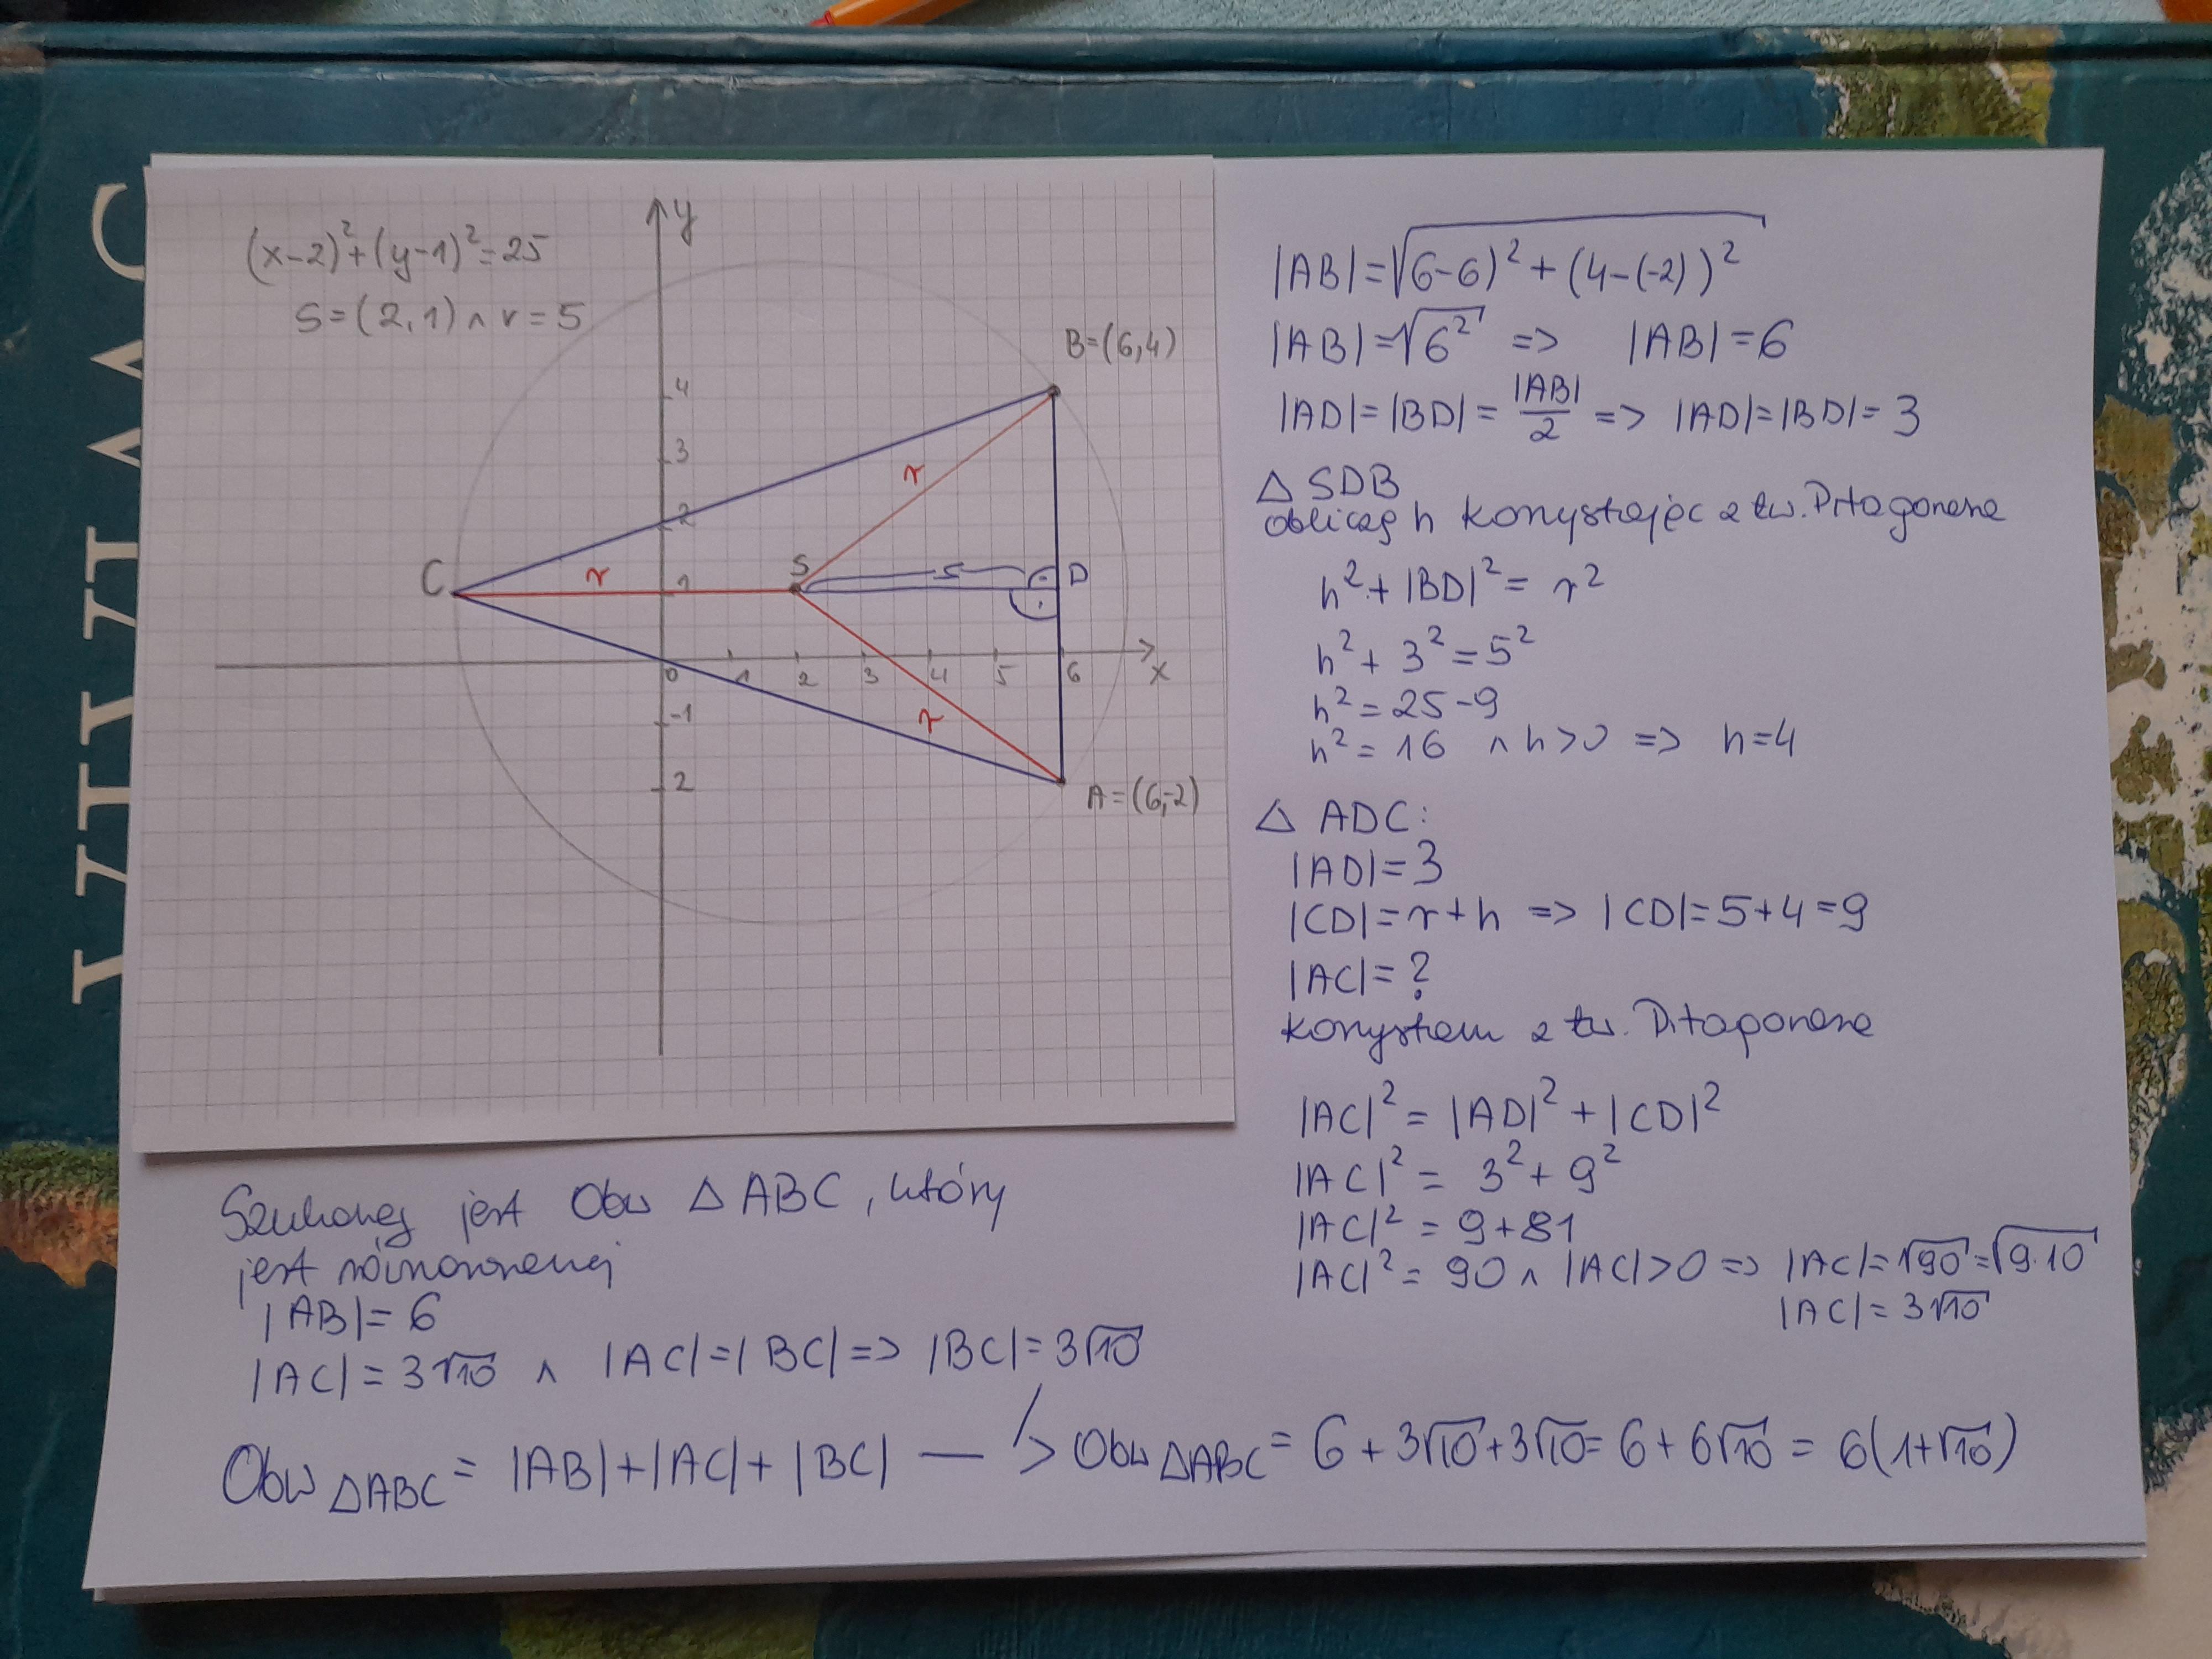 (x-2)²+(y-1)²=25
S=(2,1) ∧ r=5
y
B=(6,4)
4
3
2
r
C
r
1
S
D
0
1
2
3
4
5
6
x
-1
r
2
A=(6,-2)
|AB|=√(6-6)²+(4-(-2))²
|AB|=√6² => |AB|=6
|AD|=|BD|=|AB|/2 => |AD|=|BD|=3
△ SDB
obliczę h korzystając z tw. Pitagorasa
h²+|BD|²= r²
h²+ 3²=5²
h²=25-9
h²= 16 ∧ h>0 => h=4
△ ADC:
|AD|=3
|CD|=r+h => |CD|=5+4=9
|AC|=?
korzystam z tw. Pitagorasa
|AC|²= |AD|²+|CD|²
|AC|²= 3²+ 9²
|AC|²= 9+81
|AC|²= 90 ∧ |AC|>0 => |AC|=√90=√9·10
|AC|= 3√10
Szukany jest Obw △ABC, który
jest równoramienny
|AB|=6
|AC|=3√10 ∧ |AC|=|BC|=> |BC|=3√10
Obw △ABC = |AB|+|AC|+|BC| —> Obw △ABC = 6+3√10+3√10=6+6√10 = 6(1+√10)